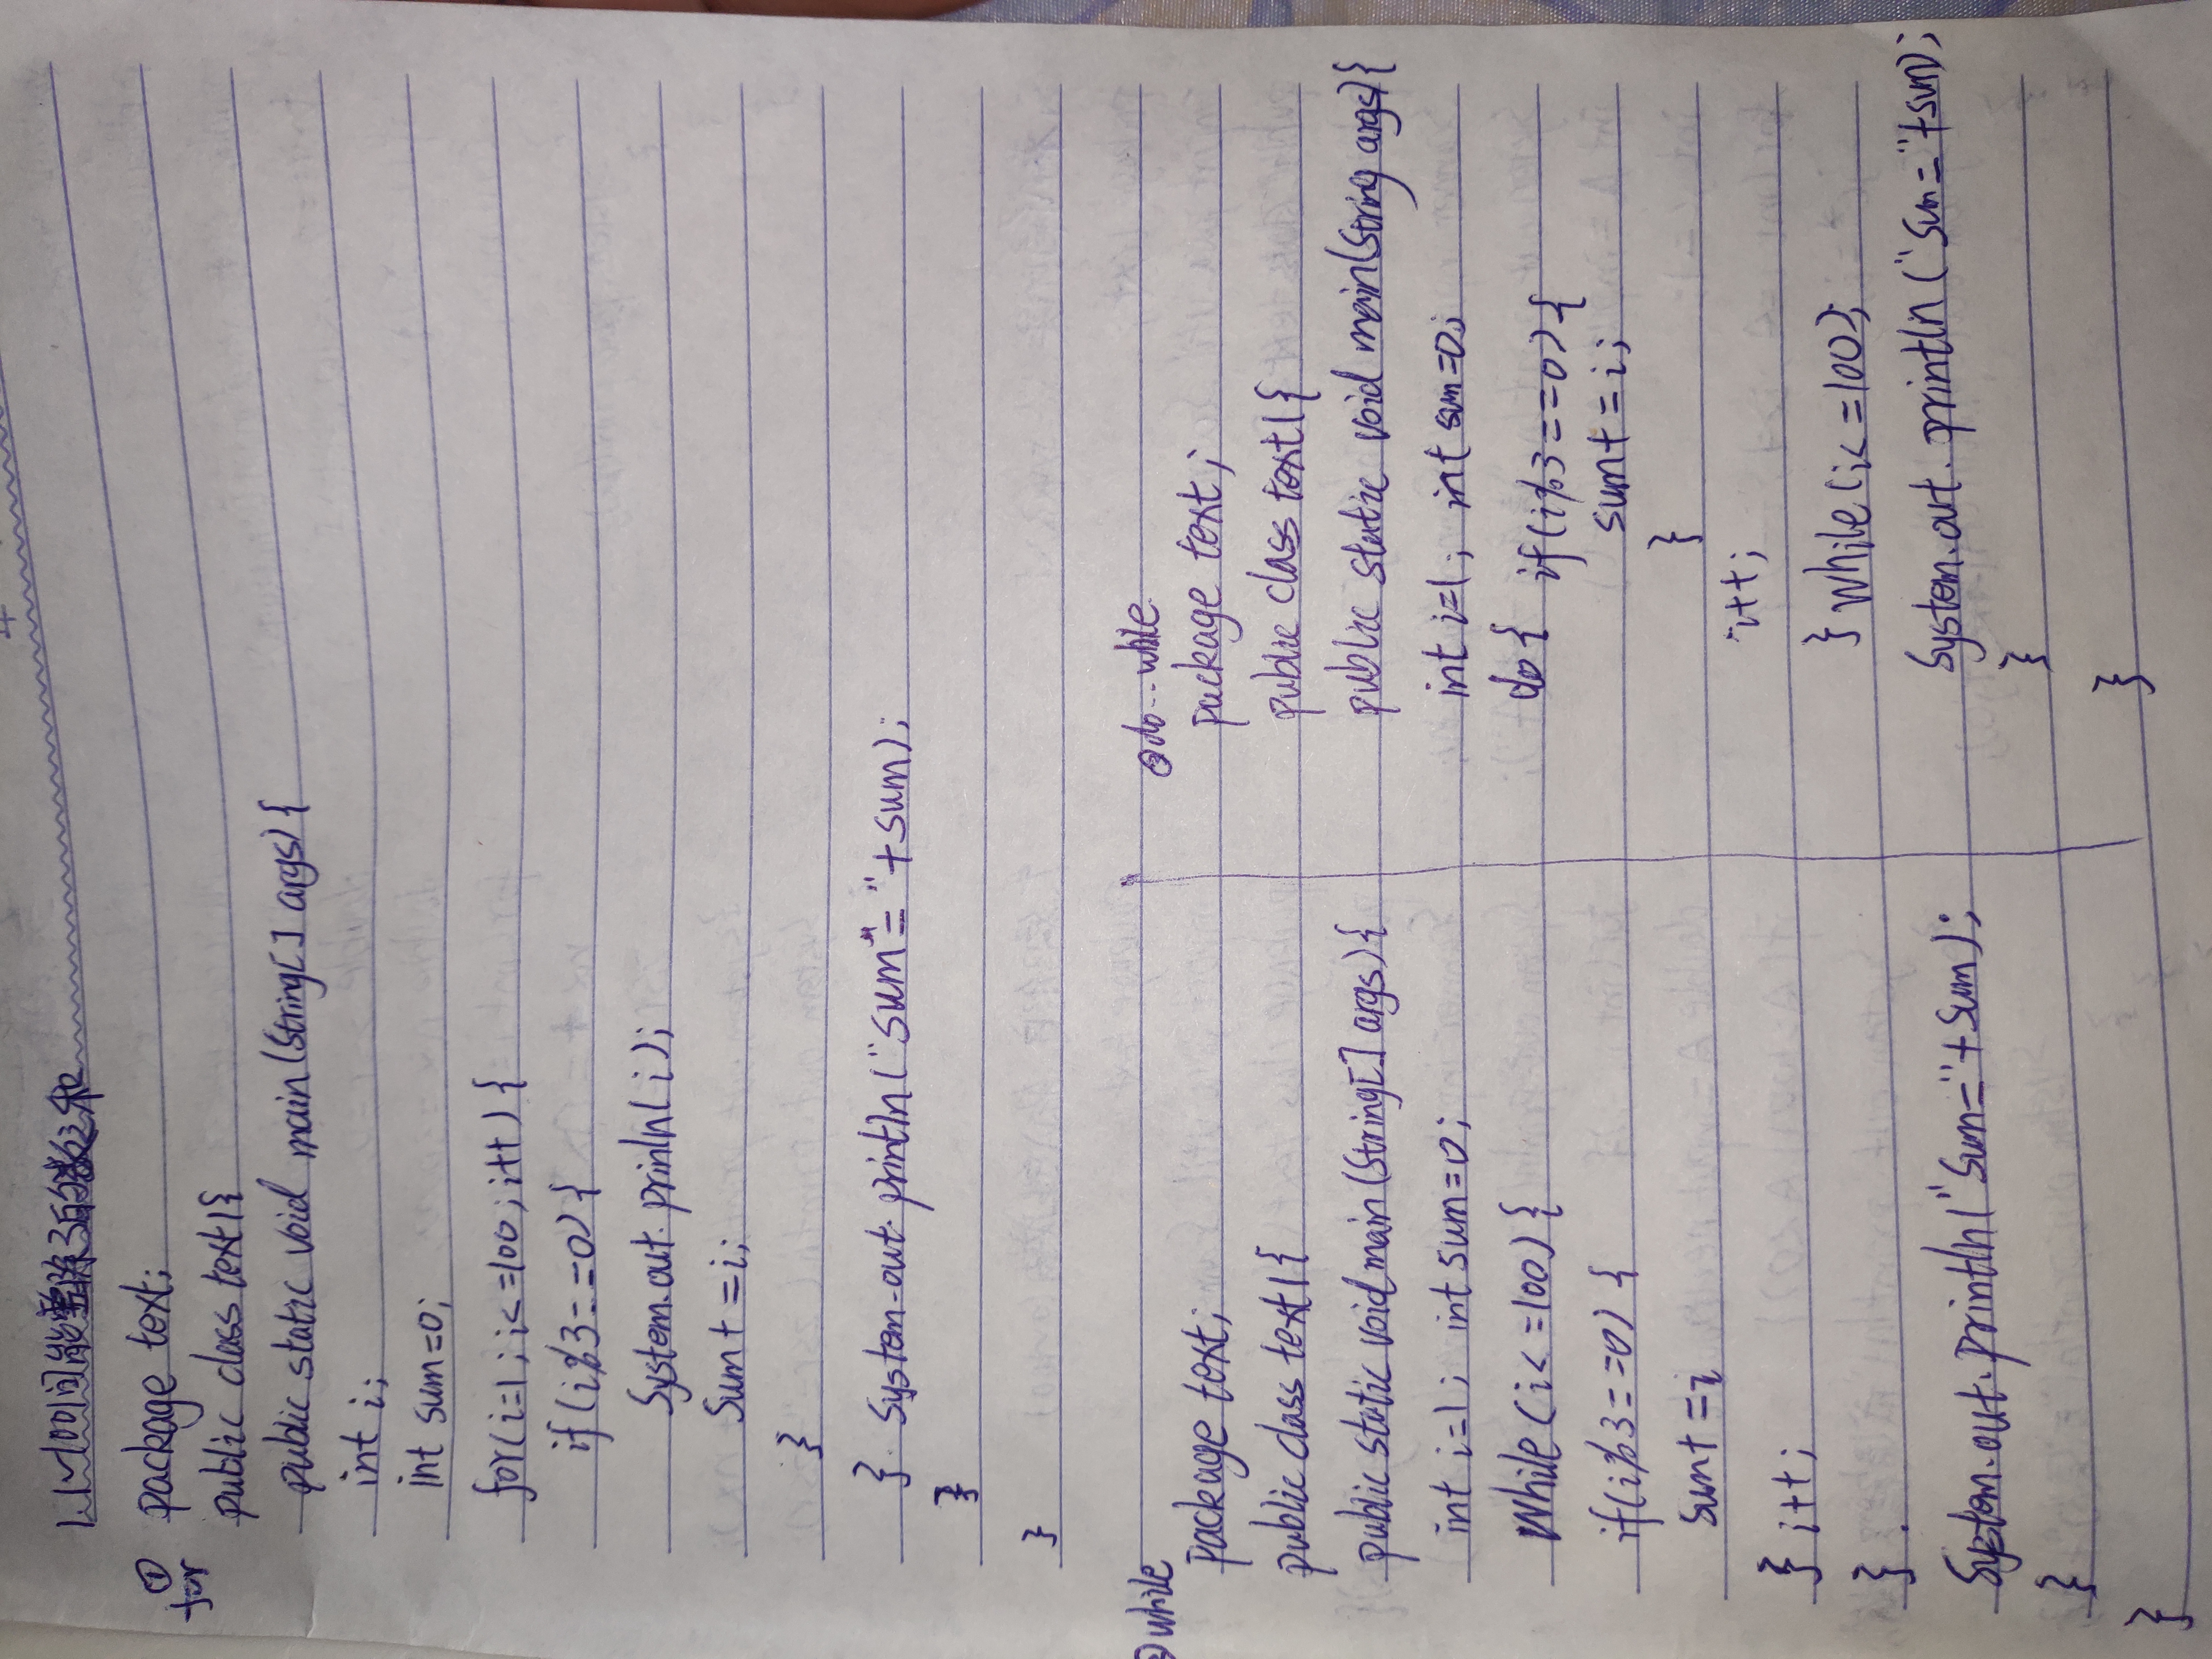 1. 1~100间能整除3的数之和
① package text;
for public class text1{
public static void main(String[] args){
int i;
int sum=0;
for(i=1;i<=100;i++){
if(i%3==0){
System.out.println(i);
sum+=i;
}
} System.out.println("sum="+sum);
}
}
②while
package text;
public class text1{
public static void main(String[] args){
int i=1; int sum=0;
while(i<=100){
if(i%3==0){
sum+=i
} i++;
}
System.out.println("sum="+sum);
}
}
③do...while
package text;
public class text1{
public static void main(String args){
int i=1; int sum=0;
do{ if(i%3==0){
sum+=i;
}
i++;
} while(i<=100);
System.out.println("sum="+sum);
}
}